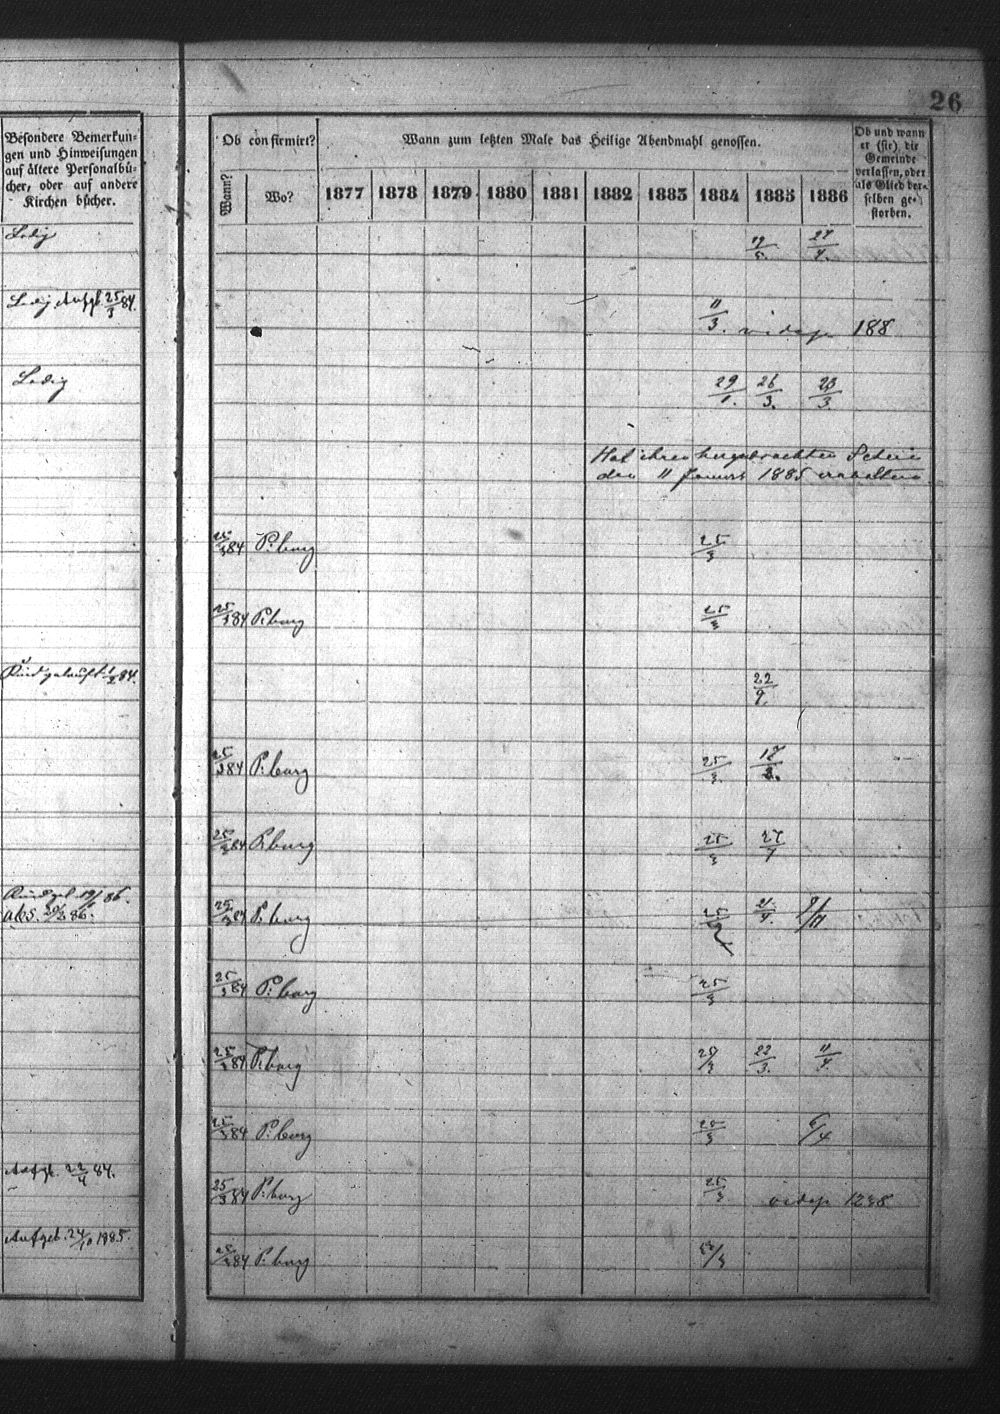 26
Besondere Bemerkun-
gen und Hinweisungen
auf ältere Personalbü-
cher, oder auf andere
Kirchen bücher.
Ob confirmirt?
Wann?
Wo?
Wann zum letzten Male das Heilige Abendmahl genossen.
1877 1878 1879 1880 1881 1882 1883 1884 1885 1886
Ob und wann
er (sie) die
Gemeinde
verlassen, oder
als Glied der-
selben ge-
storben.
Ledig
27/4.
Ledig Aufgb. 25/3 84.
11/3. vide p 188
Ledig
29/1. 26/3. 23/3.
Hat ihren hergebrachten Schein
den 11 Januar 1885 erhalten.
25/3 84 P.burg 25/3
25/3 84 P.burg 25/3
84.
22/9.
25/3 84 P.burg 25/3.
25/3 84 P.burg 25/3 27/7
86.
abs. 86.
25/3 84 P.burg 21/4. 9/11
25/3 84 P.burg 25/3
25/3 84 P.burg 25/3 22/3. 11/4.
25/3 84 P.burg 25/3 6/4
Aufgb. 22/4 84.
25/3 84 P.burg 25/3 vide p 1238
Aufgeb. 24/10 1885.
25/3 84 P.burg 25/3